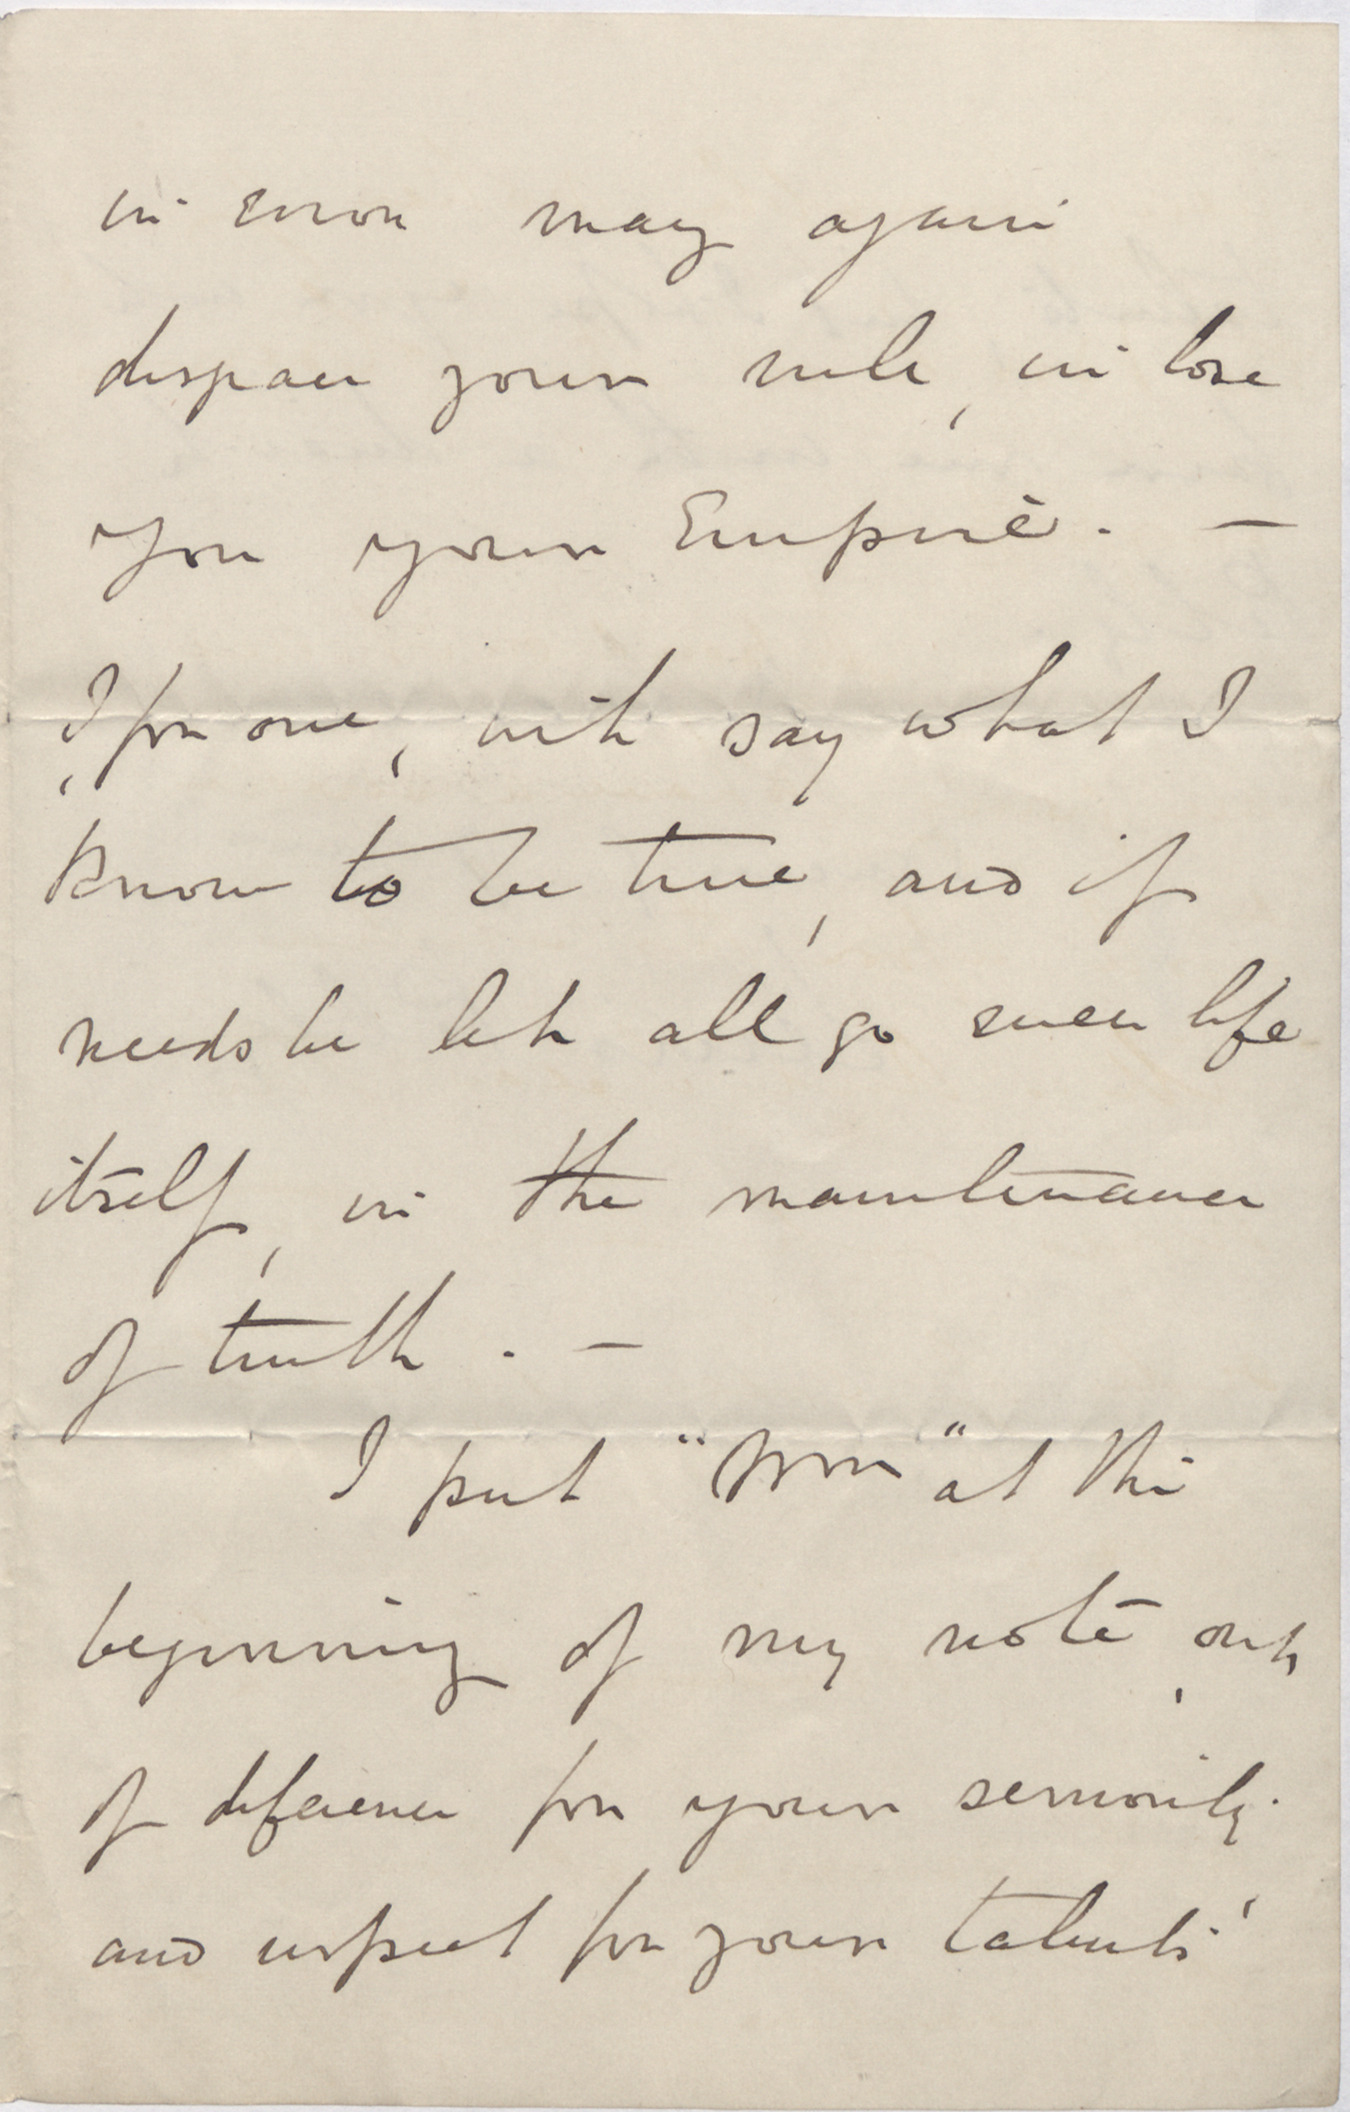 in error may again
despair your rule, or lose
you your Empire. —
I, for one, will say what I
know to be true, and if
needs be let all go even life
itself, in the maintenance
of truth. —
I put "Mr" at the
beginning of my note, out
of deference for your seniority
and respect for your talents